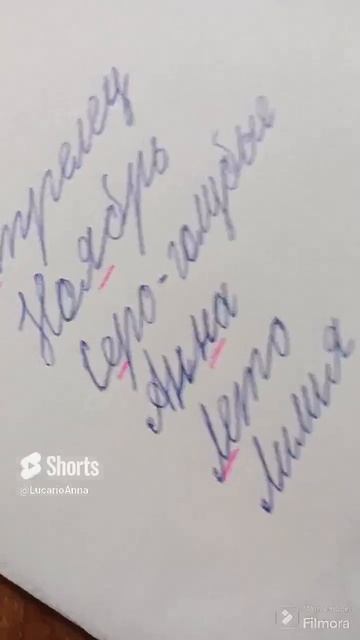 трелец
Ноябрь
серо-голубые
Анна
Лето
Лилия
Shorts
@LucarioAnna
Filmora